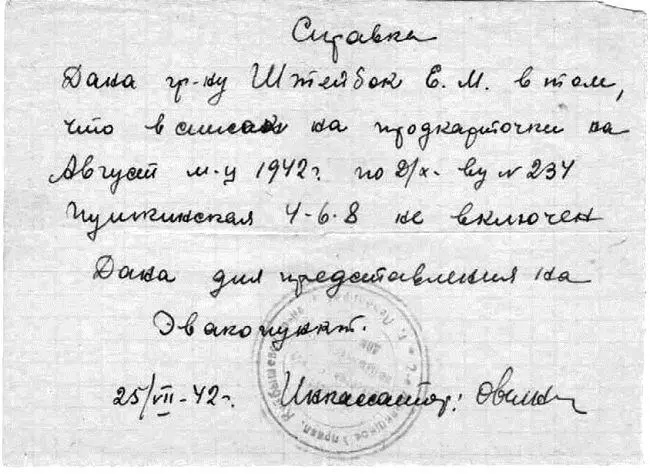 Справка
Дана гр-ну Штейбок Е. М. в том,
что в список на продкарточки на
Август м-ц 1942г. по Д/х-ву № 234
Пушкинская 4-6-8 не включен
Дана для представления на
Эвакопункт.
25/VII-42г. Инкассатор: